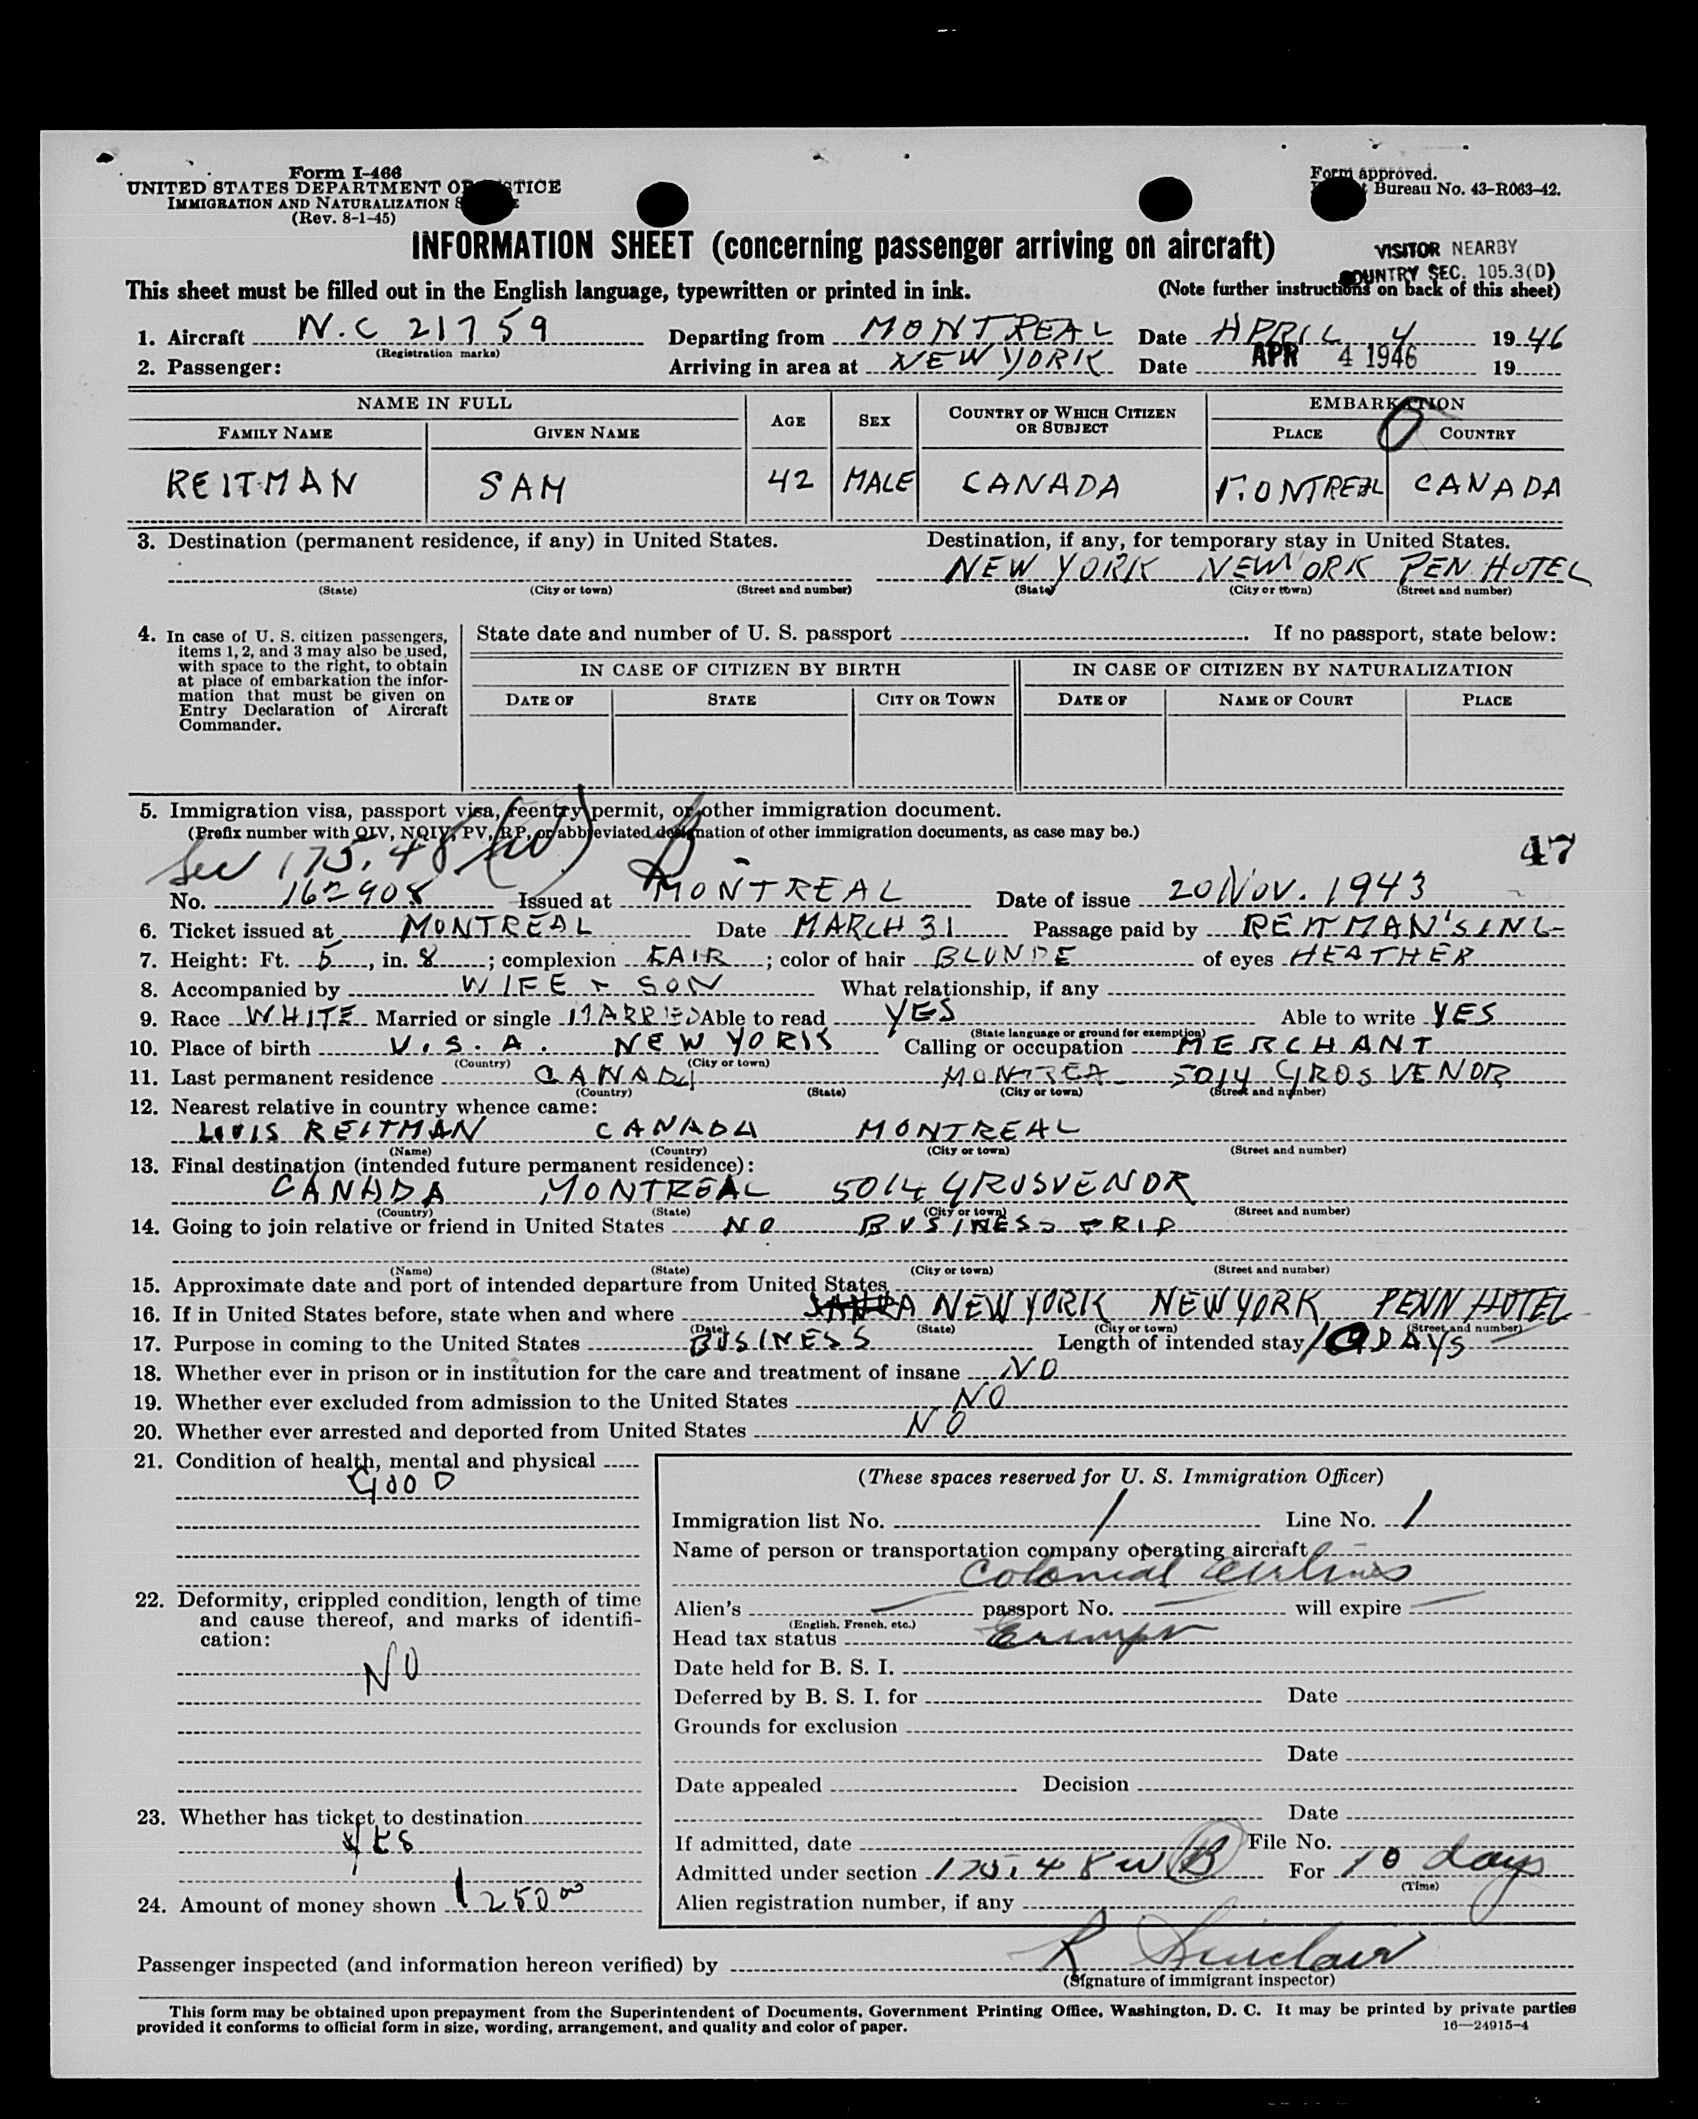 Form I-466
UNITED STATES DEPARTMENT OF JUSTICE
IMMIGRATION AND NATURALIZATION
(Rev. 8-1-45)
Form approved.
Bureau No. 43-R063-42.
INFORMATION SHEET (concerning passenger arriving on aircraft)
VISITOR NEARBY
COUNTRY SEC. 105.3(D)
This sheet must be filled out in the English language, typewritten or printed in ink. (Note further instructions on back of this sheet)
1. Aircraft N.C 21759 Departing from MONTREAL Date APRIL 4 1946
(Registration marks)
2. Passenger: Arriving in area at NEW YORK Date APR 4 1946 19
NAME IN FULL AGE SEX COUNTRY OF WHICH CITIZEN OR SUBJECT EMBARKATION
FAMILY NAME GIVEN NAME PLACE COUNTRY
REITMAN SAM 42 MALE CANADA MONTREAL CANADA
3. Destination (permanent residence, if any) in United States. Destination, if any, for temporary stay in United States.
NEW YORK NEW YORK PEN. HOTEL
(State) (City or town) (Street and number) (State) (City or town) (Street and number)
4. In case of U. S. citizen passengers, items 1, 2, and 3 may also be used, with space to the right, to obtain at place of embarkation the information that must be given on Entry Declaration of Aircraft Commander.
State date and number of U. S. passport If no passport, state below:
IN CASE OF CITIZEN BY BIRTH IN CASE OF CITIZEN BY NATURALIZATION
DATE OF STATE CITY OR TOWN DATE OF NAME OF COURT PLACE
5. Immigration visa, passport visa, reentry permit, or other immigration document.
(Prefix number with QIV, NQIV, PV, RP, or abbreviated designation of other immigration documents, as case may be.)
Sec 175.48 (w) B
47
No. 162908 Issued at MONTREAL Date of issue 20 NOV. 1943
6. Ticket issued at MONTREAL Date MARCH 31 Passage paid by REITMAN'S INC
7. Height: Ft. 5, in. 8; complexion FAIR; color of hair BLONDE of eyes HEATHER
8. Accompanied by WIFE + SON What relationship, if any
9. Race WHITE Married or single MARRIED Able to read YES Able to write YES
(State language or ground for exemption)
10. Place of birth U.S.A. NEW YORK Calling or occupation MERCHANT
(Country) (City or town)
11. Last permanent residence CANADA MONTREA 5014 GROSVENOR
(Country) (State) (City or town) (Street and number)
12. Nearest relative in country whence came:
LOUIS REITMAN CANADA MONTREAL
(Name) (Country) (City or town) (Street and number)
13. Final destination (intended future permanent residence):
CANADA MONTREAL 5014 GROSVENOR
(Country) (State) (City or town) (Street and number)
14. Going to join relative or friend in United States NO BUSINESS TRIP
(Name) (State) (City or town) (Street and number)
15. Approximate date and port of intended departure from United States
16. If in United States before, state when and where NEW YORK NEW YORK PENN HOTEL
(Date) (State) (City or town) (Street and number)
17. Purpose in coming to the United States BUSINESS Length of intended stay 10 DAYS
18. Whether ever in prison or in institution for the care and treatment of insane NO
19. Whether ever excluded from admission to the United States NO
20. Whether ever arrested and deported from United States NO
21. Condition of health, mental and physical
GOOD
22. Deformity, crippled condition, length of time and cause thereof, and marks of identification:
NO
23. Whether has ticket to destination
YES
24. Amount of money shown $250.00
(These spaces reserved for U. S. Immigration Officer)
Immigration list No. 1 Line No. 1
Name of person or transportation company operating aircraft
Colonial Airlines
Alien's — passport No. — will expire —
(English, French, etc.)
Head tax status Exempt
Date held for B. S. I.
Deferred by B. S. I. for Date
Grounds for exclusion
Date
Date appealed Decision
Date
If admitted, date File No.
Admitted under section 175.48 w B For 10 days
(Time)
Alien registration number, if any
Passenger inspected (and information hereon verified) by R Sinclair
(Signature of immigrant inspector)
This form may be obtained upon prepayment from the Superintendent of Documents, Government Printing Office, Washington, D. C. It may be printed by private parties
provided it conforms to official form in size, wording, arrangement, and quality and color of paper.
16—24915-4